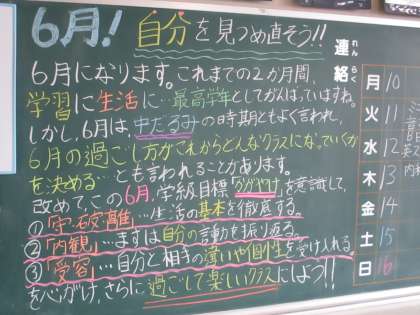 6月! 自分を見つめ直そう!!
6月になります。これまでの2カ月間、
学習に生活に…最高学年としてがんばっていますね。
しかし、6月は、中だるみの時期ともよく言われ、
6月の過ごし方がこれからどんなクラスになっていくか
を決める…とも言われることがあります。
改めて、この6月、学級目標を意識して、
①「守・破・離」…生活の基本を徹底する。
②「内観」…まずは自分の言動を振り返る。
③「受容」…自分と相手の違いや個性を受け入れる。
を心がけ、さらに過ごして楽しいクラスにしよう!!
連絡
れんらく
月 10
火 11
水 12
木 13
金 14
土 15
日 16